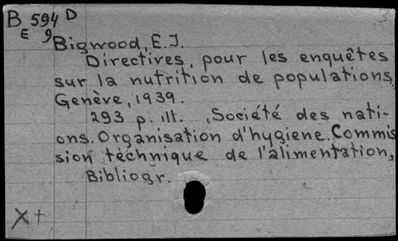 B 594 D
E 9
Bigwood, E.J.
Directives, pour les enquêtes
sur la nutrition de populations,
Genève, 1939.
293 p. ill. , Société des nati-
ons. Organisation d'hygiene. Commis
sion technique de l'alimentation,
Bibliogr.
X+